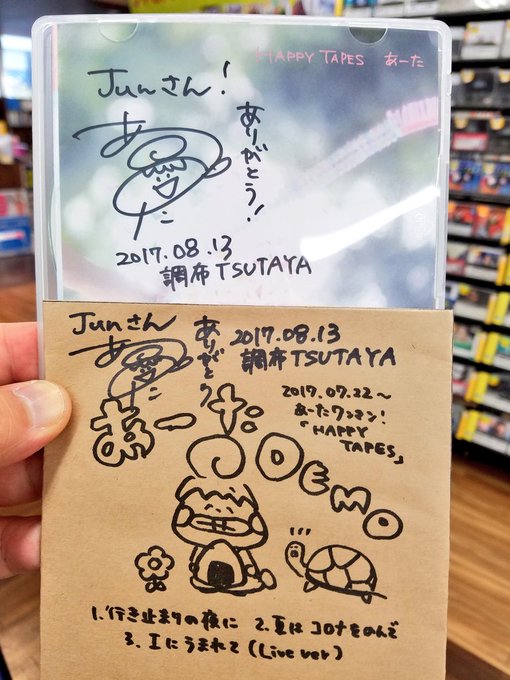 HAPPY TAPES あーた
Junさん!
ありがとう!
あーた
2017.08.13
調布TSUTAYA
Junさん
ありがとう
あーた
2017.08.13
調布TSUTAYA
2017.07.22〜
あーたワンマン!
「HAPPY
TAPES」
あーた
DEMO
1.行き止まりの夜に 2.夏はコロナをのんで
3.Iにうまれて(Live ver)